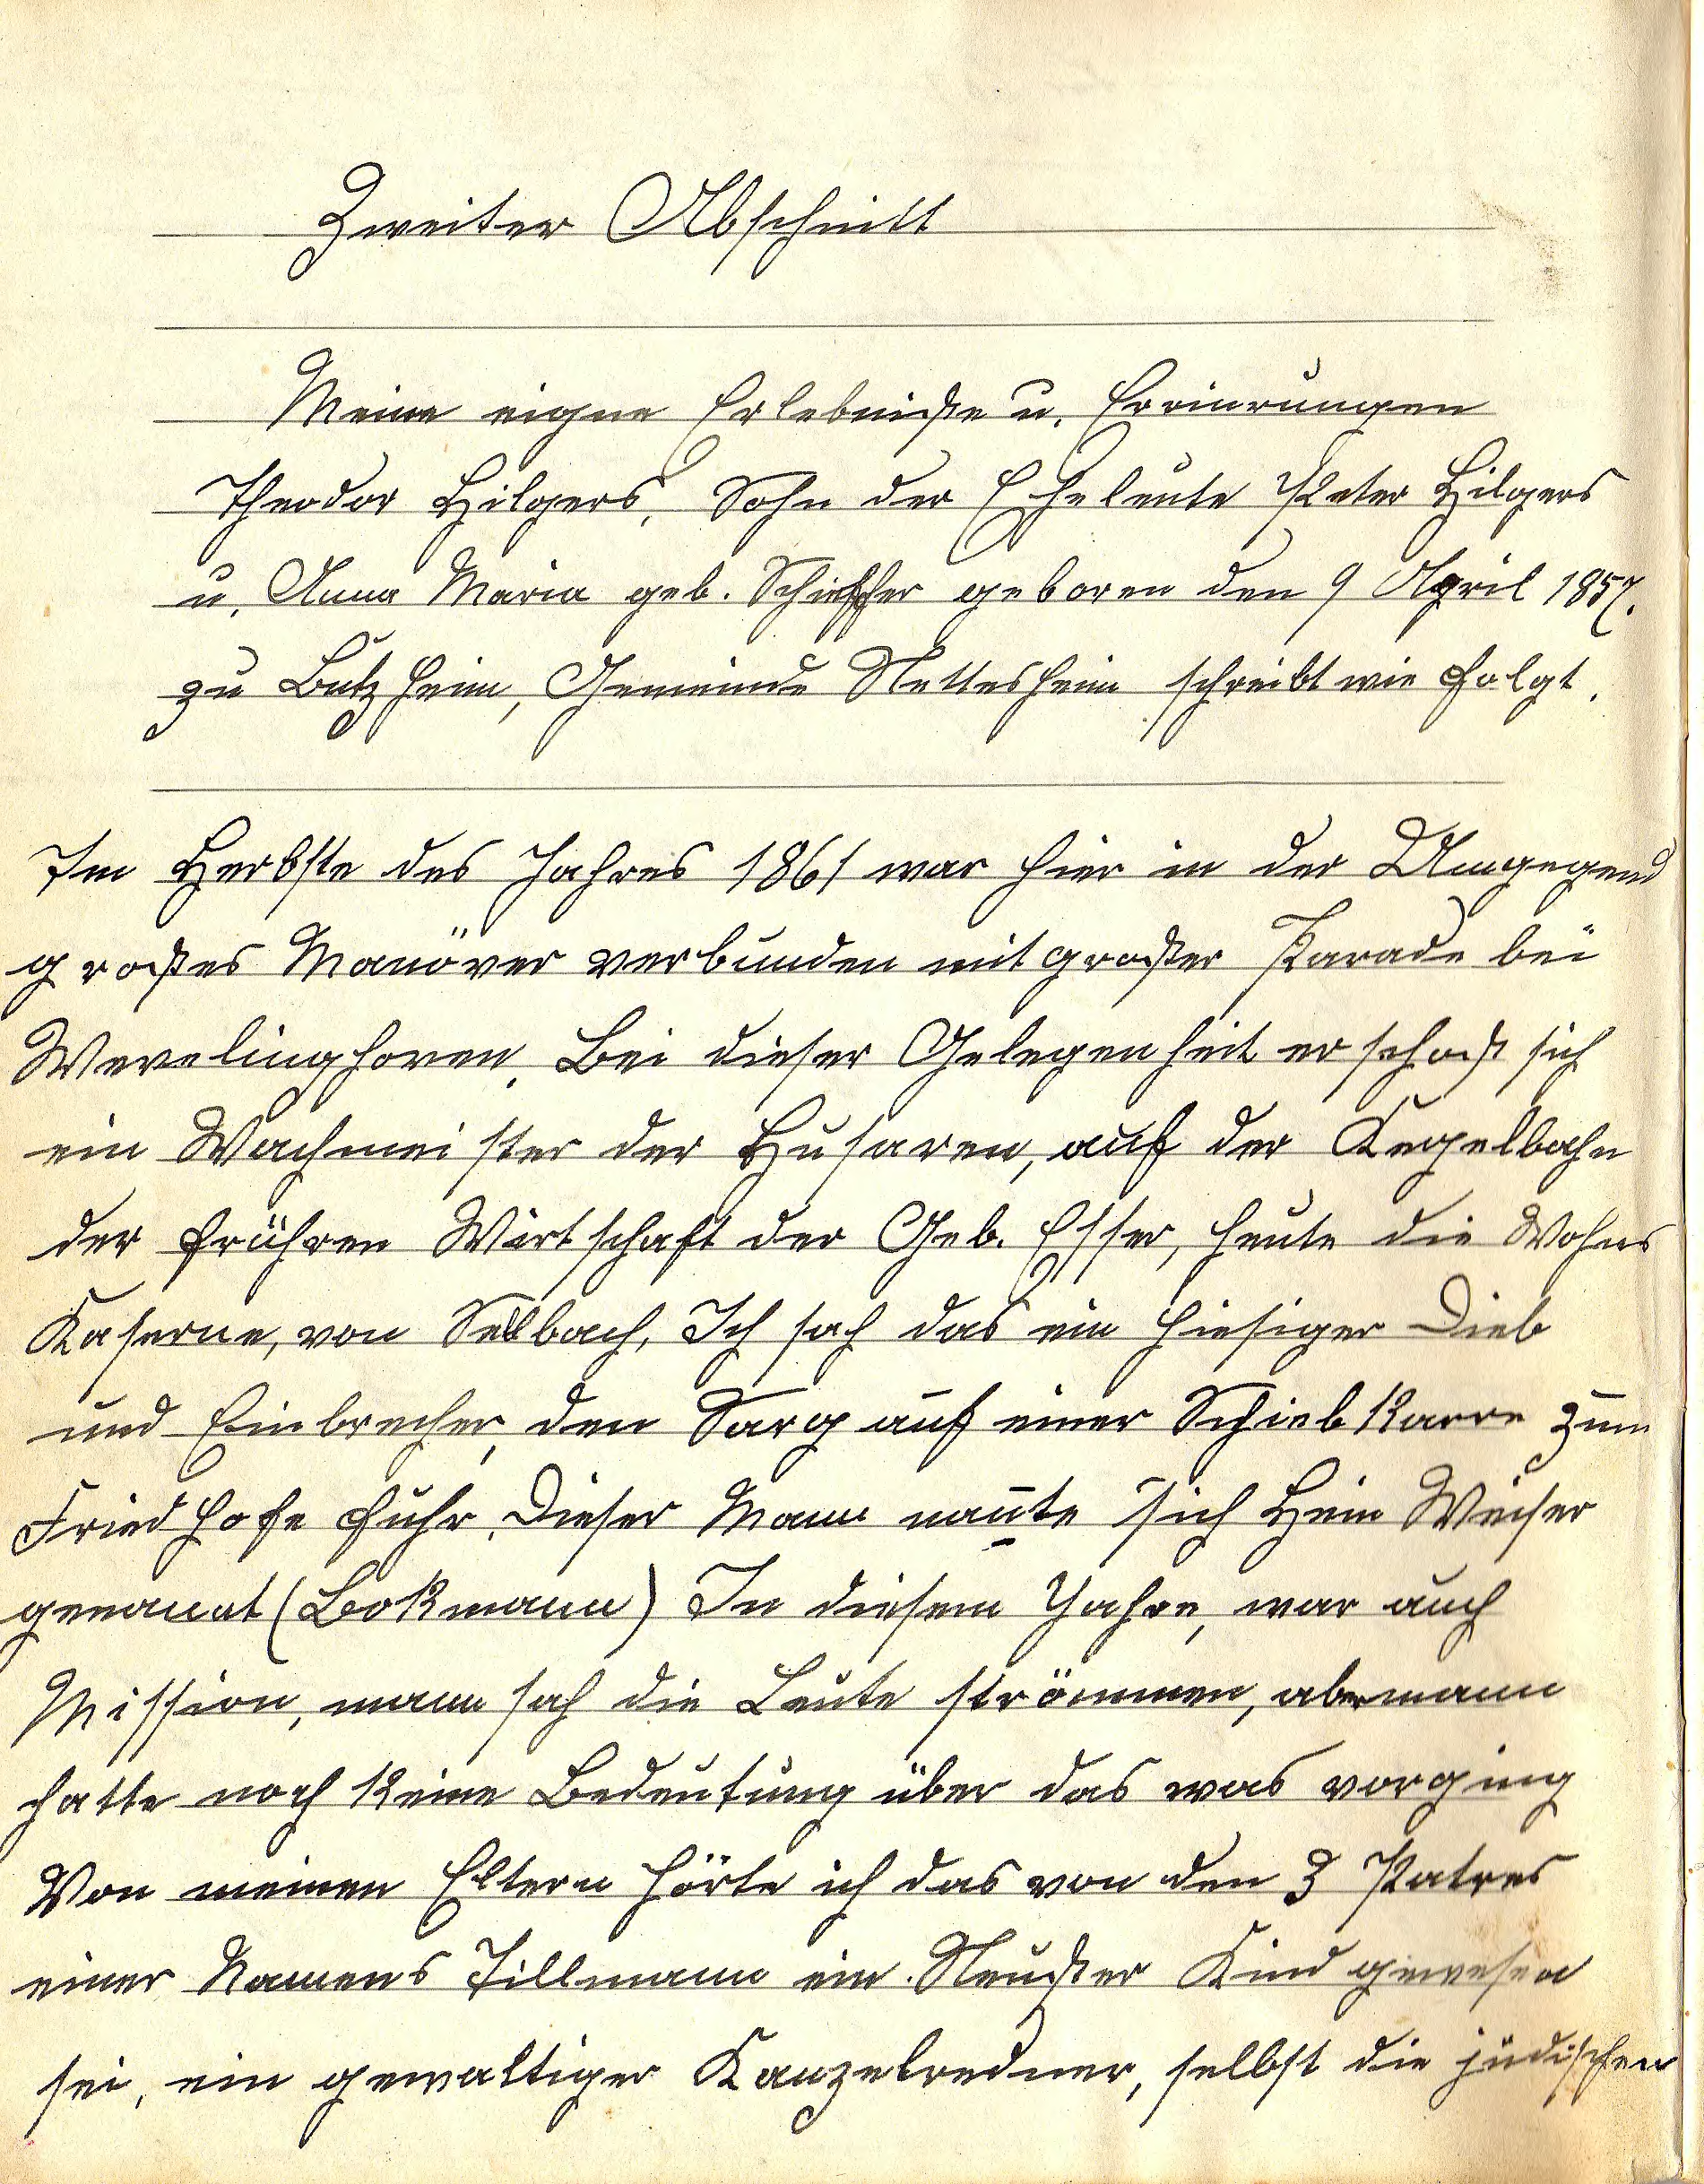 Zweiter Abschnitt
Meine eigne Erlebniße u. Erinrungen
Theodor Hilgers, Sohn der Eheleute Peter Hilgers
u. Anna Maria geb. Schieffer geboren den 9 April 1857.
zu Butzheim, Gemeinde Nettesheim schreibt wie folgt.
Im Herbste des Jahres 1861 war hier in der Umgegend
großes Manöver verbunden mit großer Parade bei
Wevelinghoven. Bei dieser Gelegenheit erschoß sich
ein Wachmeister der Husaren, auf der Kegelbahn
der frühren Wirtschaft der Geb. Esser, heute die Wohns
Kaserne, von Sellbach, Ich sah das ein hiesiger Dieb
und Einbrecher, den Sarg auf einer Schiebkarre zum
Friedhofe fuhr. Dieser Mann nañte sich Hein Weiser
genannt (Bokmann) In diesem Jahre, war auch
Mission, mann sah die Leute strömmen, aber mann
hatte noch keine Bedeutung über das was vorging
Von meinen Eltern hörte ich das von den 3 Patres
einer Namens Tillmann ein Neußer Kind gewesen
sei, ein gewaltiger Kanzelredner, selbst die jüdischen